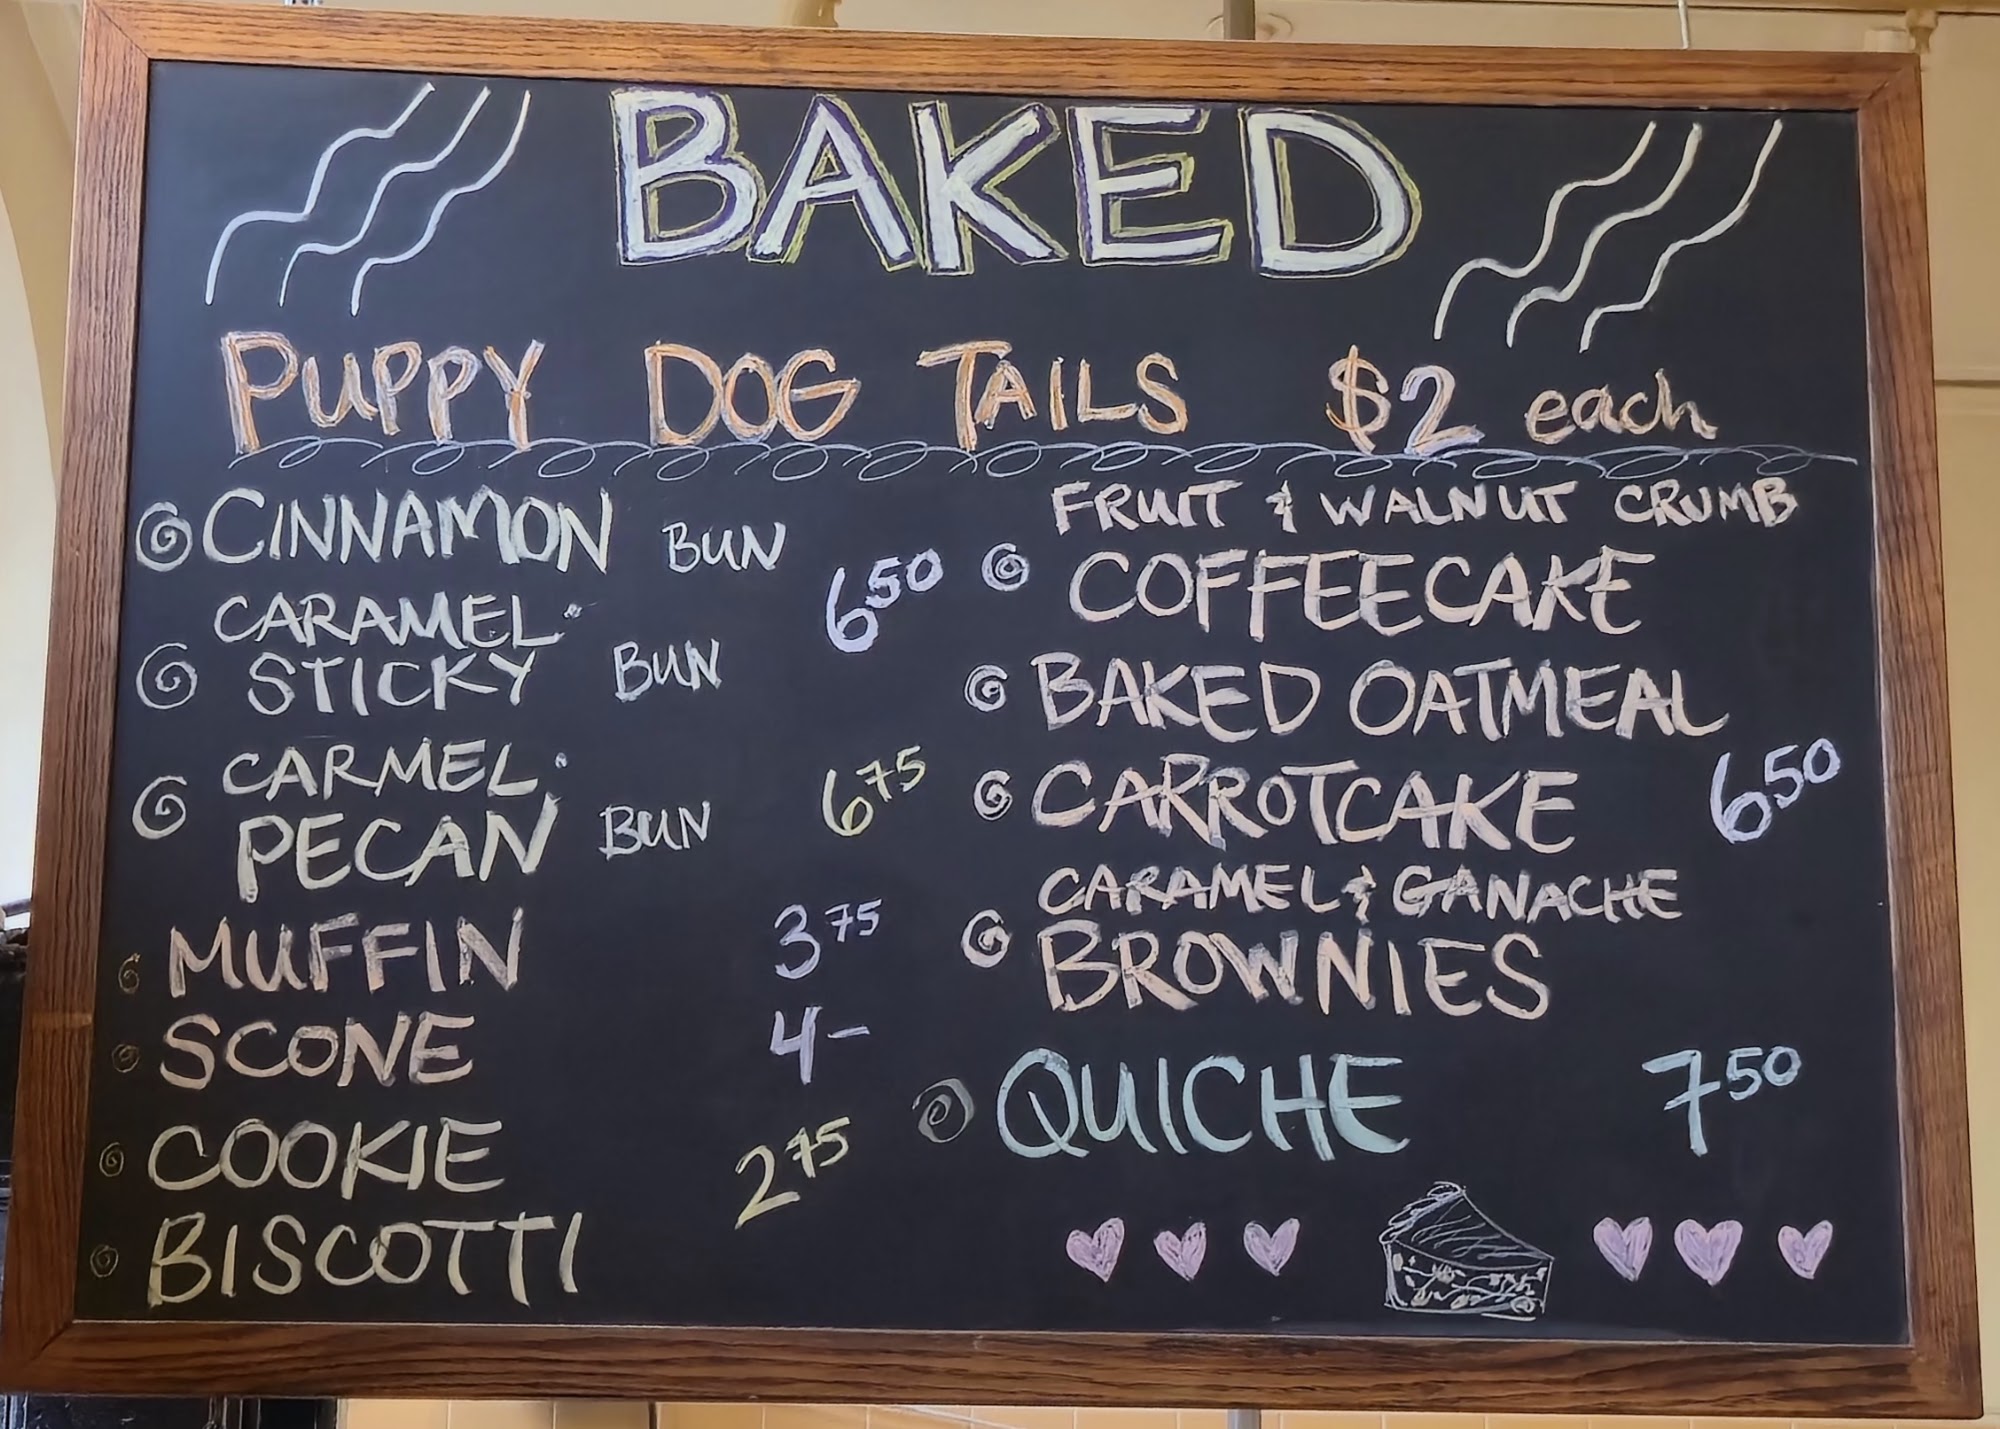 BAKED
PUPPY DOG TAILS $2 each
CINNAMON BUN
CARAMEL·
STICKY BUN
6 50
CARMEL·
PECAN BUN 6 75
MUFFIN 3 75
SCONE 4-
COOKIE
BISCOTTI
2 75
FRUIT & WALNUT CRUMB
COFFEECAKE
BAKED OATMEAL
CARROTCAKE 6 50
CARAMEL & GANACHE
BROWNIES
QUICHE 7 50